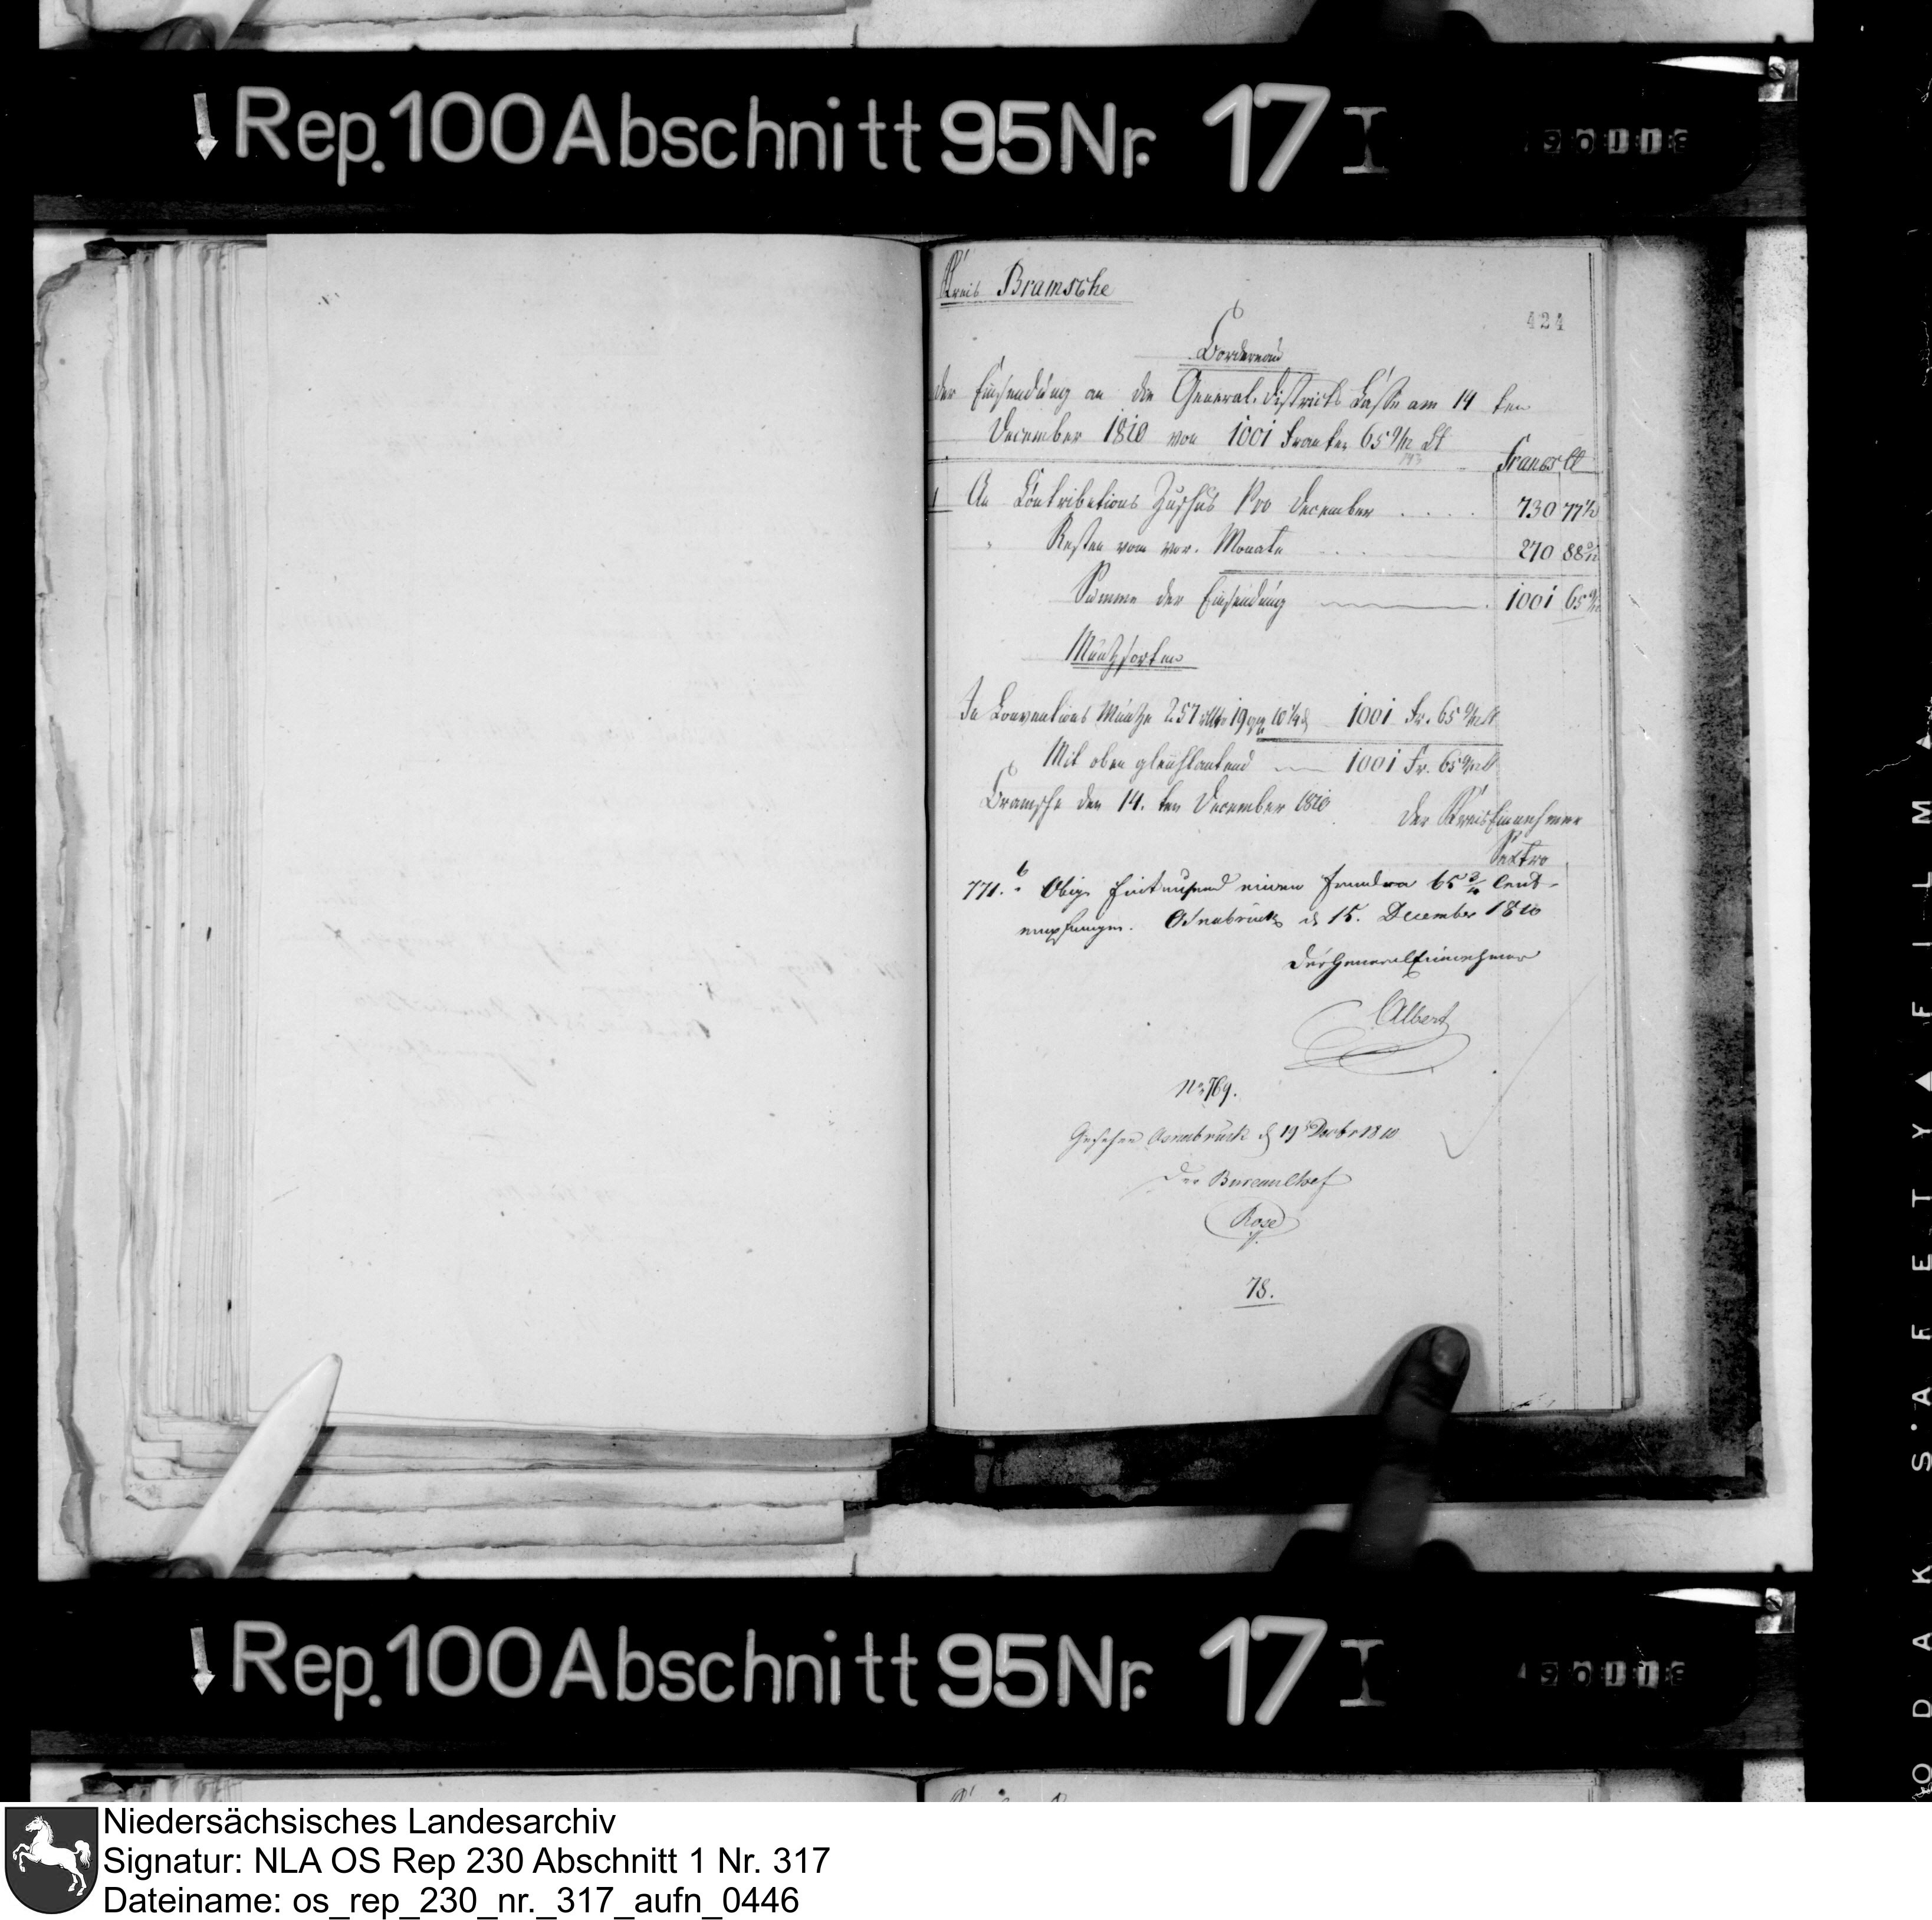 Rep. 100 Abschnitt 95 Nr. 17 I
Kreis Bramsche
424
Bordereau
der Einsendung an die General-Districts Casse am 14 ten
December 1810 von 1001 Franken 65 9/12 Ct
Francs Ct
1 An Contributions Zuschus Pro December . . . . 730 77 1/2
Resten vom vor. Monate . . . 270 88 3/12
Summe der Einsendung 1001 65 9/12
Müntzsorten
In Conventions Müntze 257 rthlr 19 ggr 10 1/4 d 1001 Fr. 65 9/12 Ct
Mit oben gleichlautend 1001 Fr. 65 9/12 Ct
Bramsche den 14. ten December 1810
Der Kreis Einnehmer
Sextro
771. b Obige Eintausend einen Franken 65 3/4 Cent
empfangen. Osnabrück d 15. December 1810
Der General Einnehmer
Albert
No 769.
Gesehen Osnabrück d 19 Decbr 1810
Der Bureau Chef
Rose
78.
Rep. 100 Abschnitt 95 Nr. 17 I
KODAK SAFETY FILM
Niedersächsisches Landesarchiv
Signatur: NLA OS Rep 230 Abschnitt 1 Nr. 317
Dateiname: os_rep_230_nr._317_aufn_0446